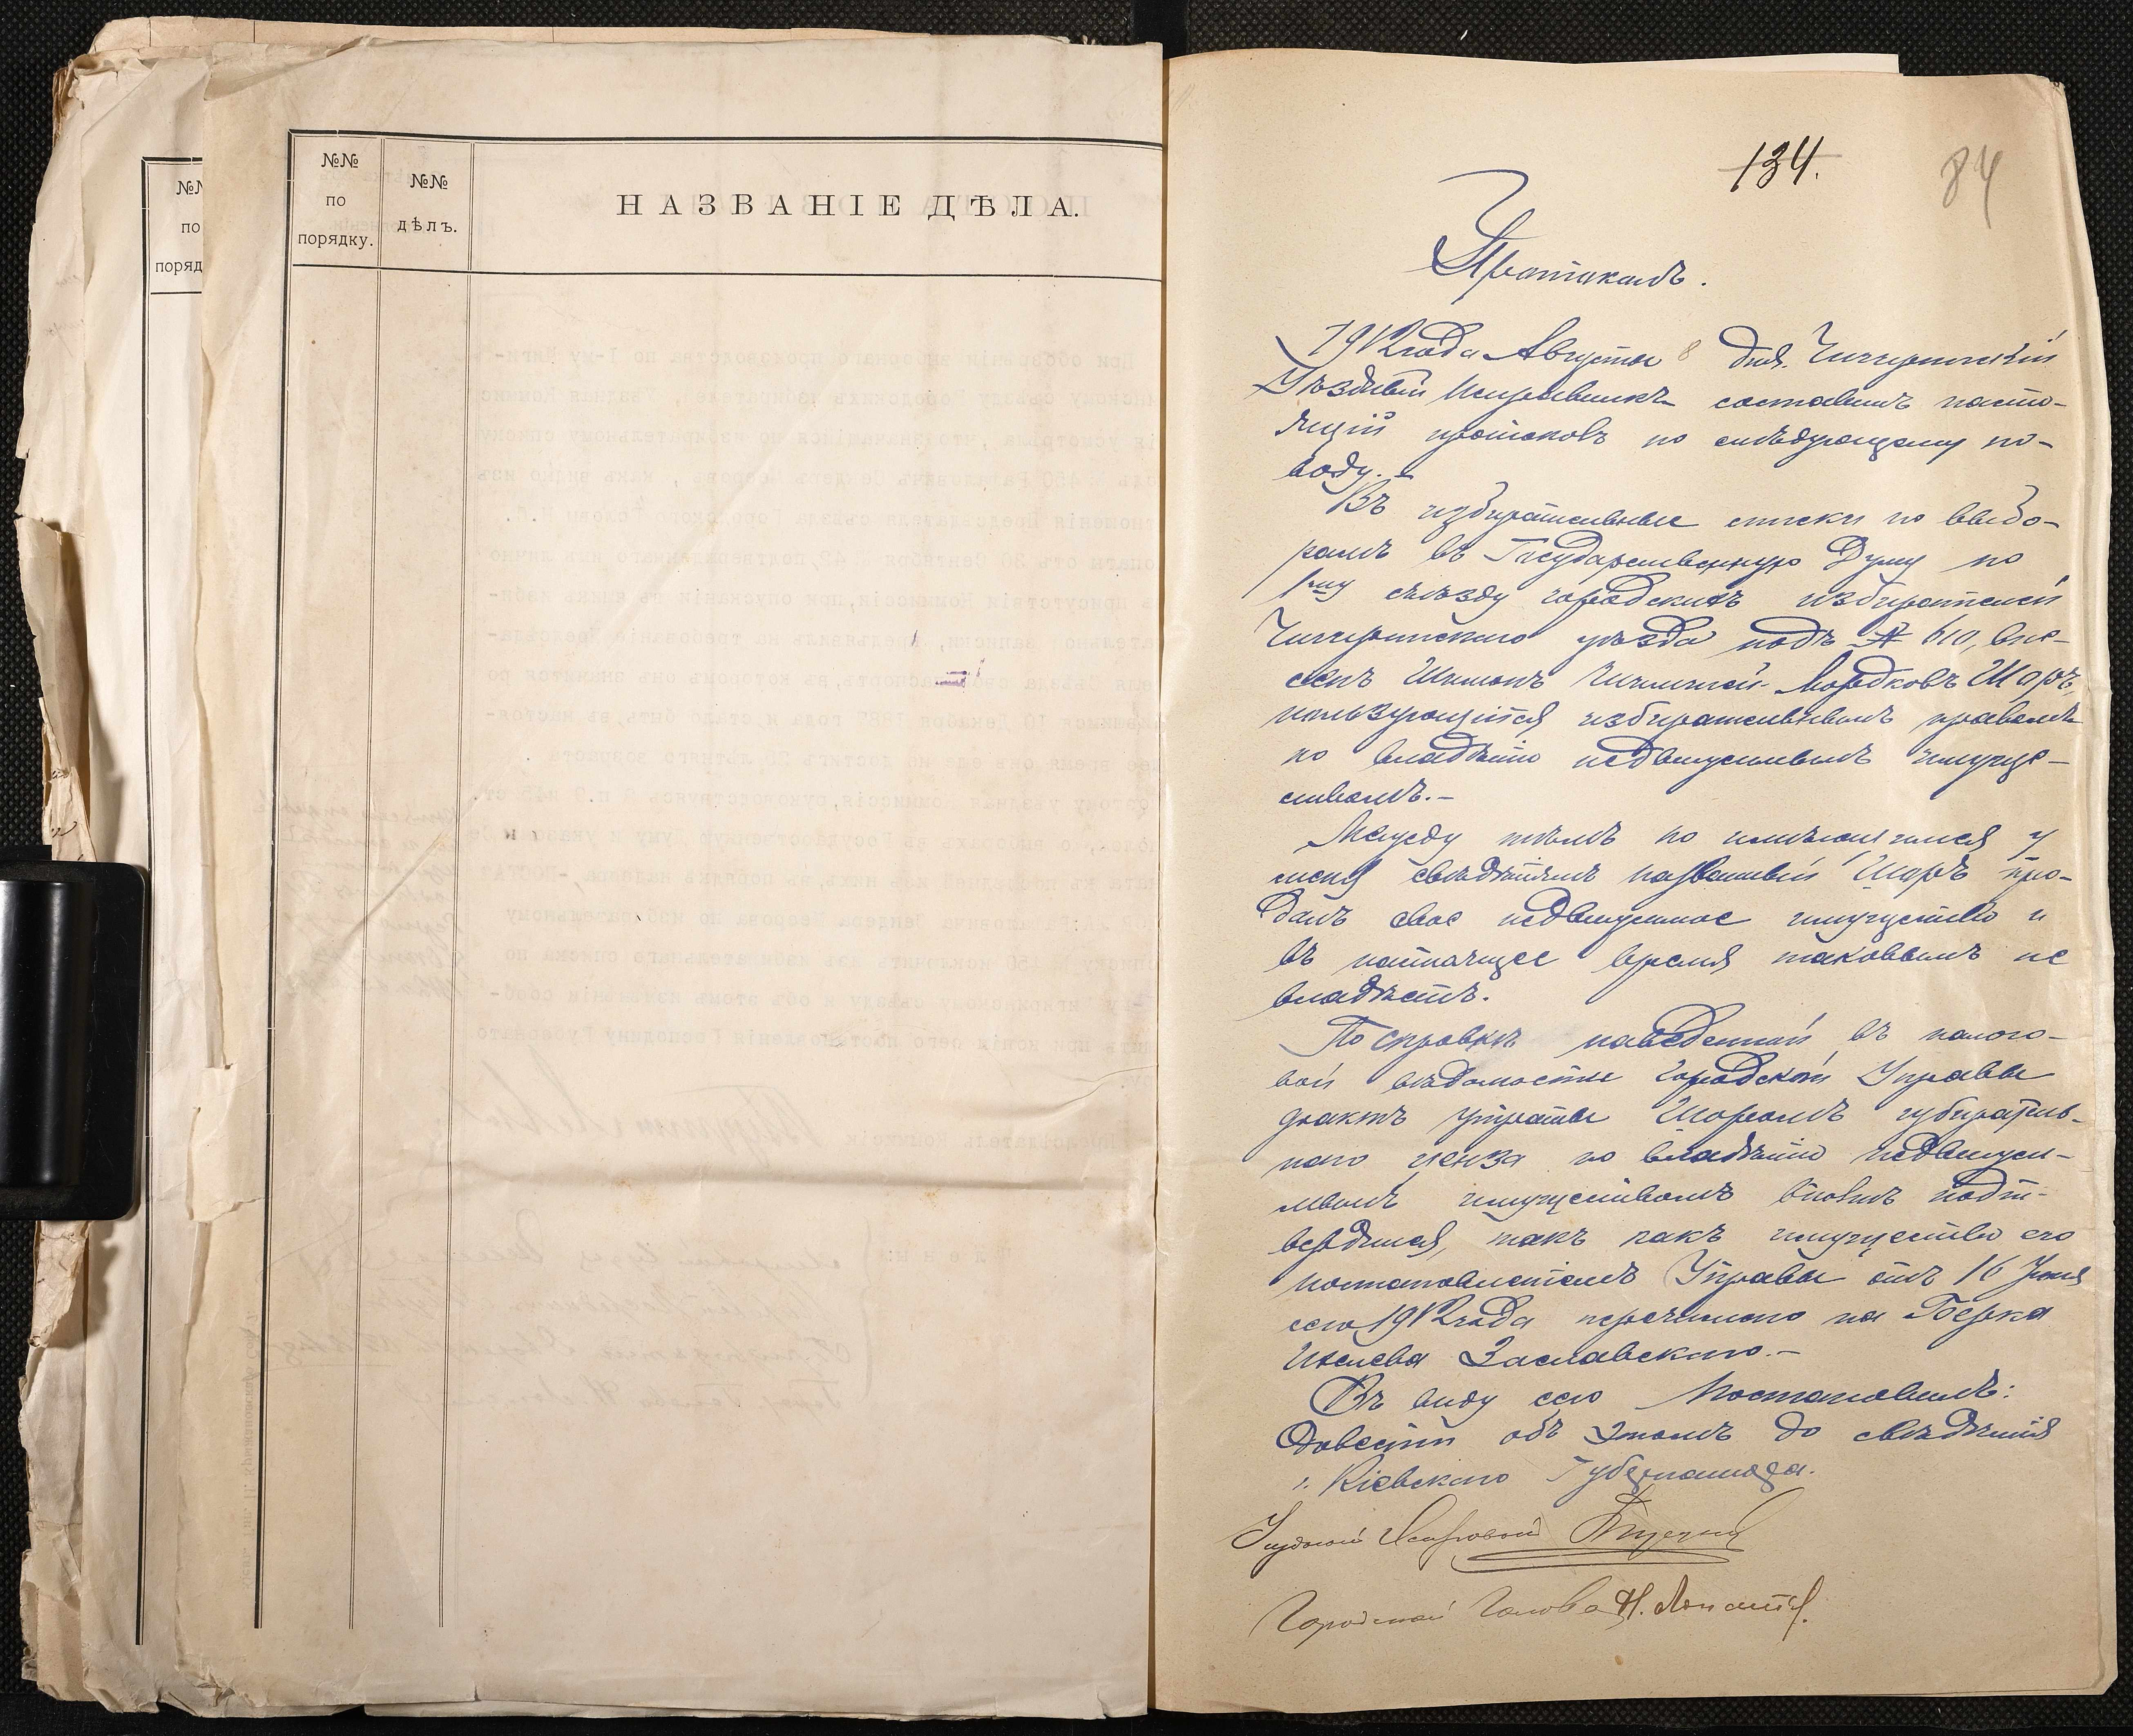 №№
по
порядку.
№№
по
порядку.
№№
дѣлъ.
НАЗВАНІЕ ДѢЛА.
134.
84
Протоколъ.
1912 года Августа 8 дня. Чигиринскій
Уѣздный Исправникъ составилъ насто-
ящій протоколъ по слѣдующему по-
воду.-
Въ избирательные списки по выбо-
рамъ въ Государственную Думу по
1му съѣзду городскихъ избирателей
Чигиринскаго уѣзда подъ № 610, вне-
сенъ Мордковъ Шоръ,
пользующійся избирательнымъ правомъ
по владѣнію недвижимымъ имуще-
ствомъ.-
Между тѣмъ по имѣющимся у
меня свѣдѣніямъ названный Шоръ про-
далъ свое недвижимое имущество и
въ настоящее время таковымъ не
владѣетъ.
По справкѣ наведенной въ налого-
вой вѣдомости Городской Управы
фактъ утраты Шоромъ избиратель-
наго ценза по владѣнію недвижи-
мымъ имуществомъ вполнѣ подт-
вердился, такъ какъ имущество его
постановленіемъ Управы отъ 16 Іюня
сего 1912 года перечислено на Берка
Заславскаго.-
Въ виду сего Постановилъ:
Довести объ этомъ до свѣдѣнія
г. Кіевскаго Губернатора.
Уѣздный Исправникъ
Городской Голова Н. Лопата